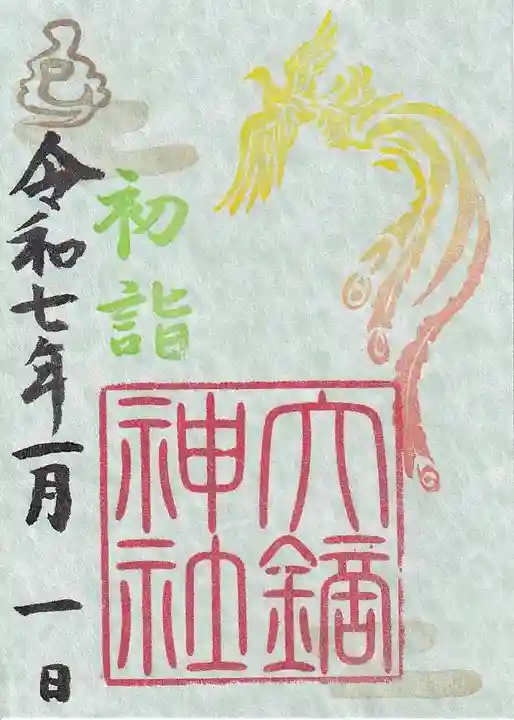 初詣
大鏑
神社
令和七年一月一日
巳